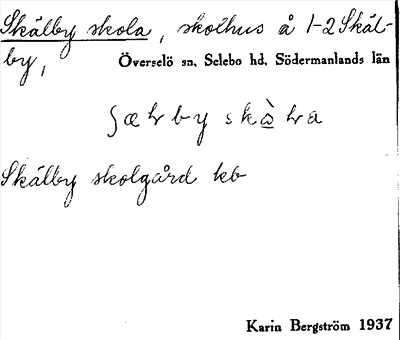 Skälby skola, skolhus å 1-2 Skäl-
by, Överselö sn, Selebo hd, Södermanlands län
Skälby skolgård kb
Karin Bergström 1937